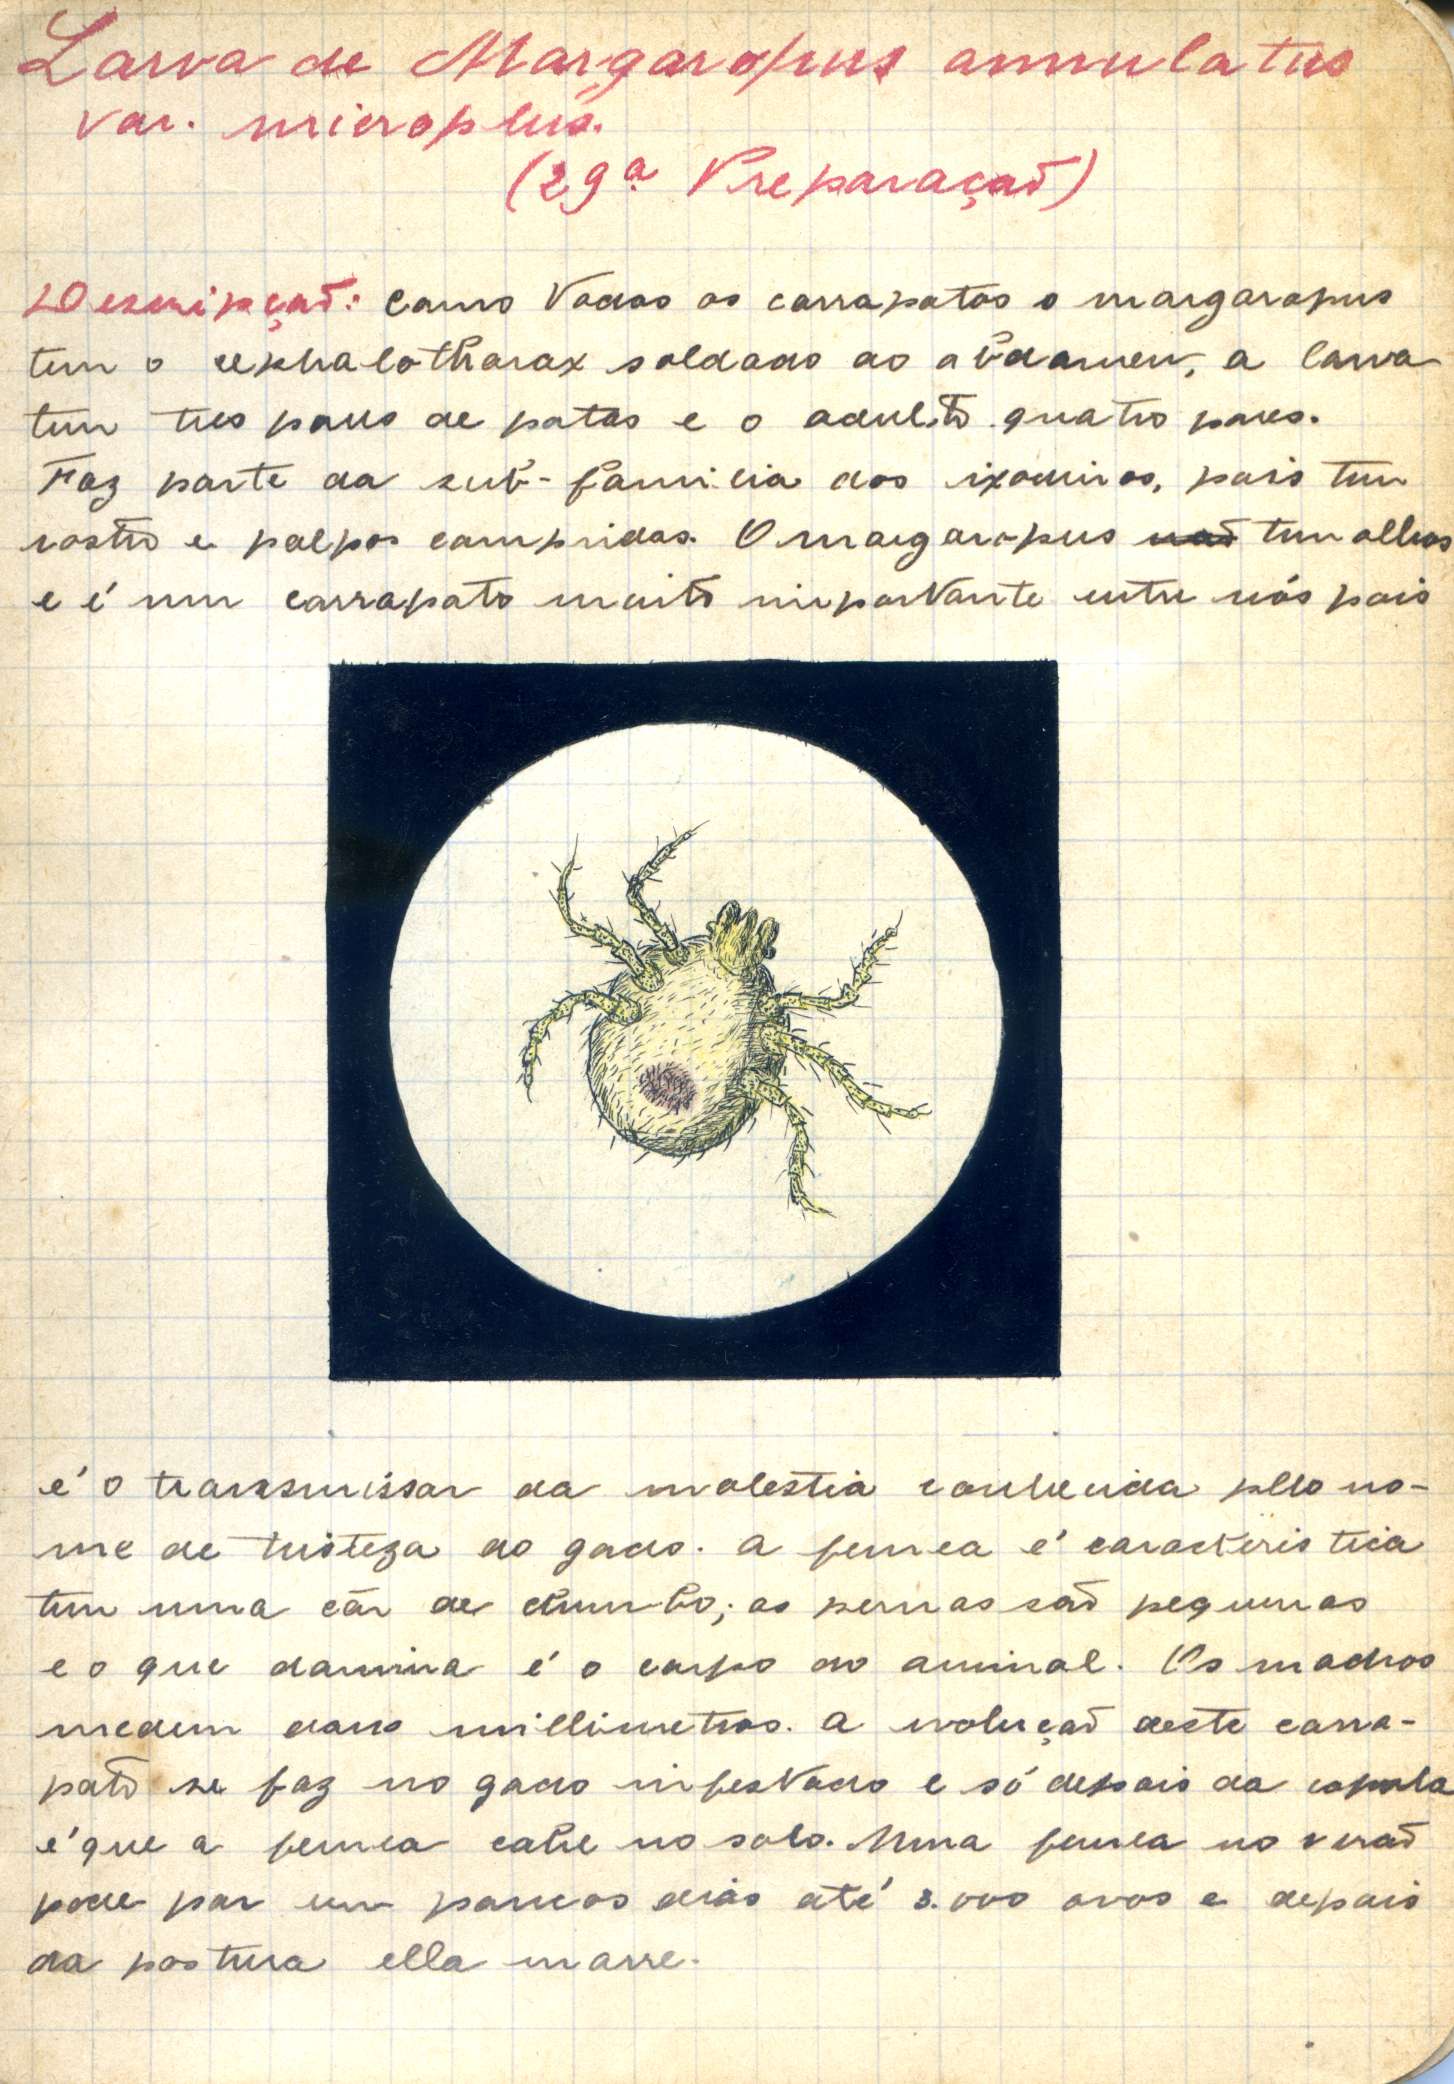 Larva de Margaropus annulatus
var. microplus.
(29ª Preparação)
Descripção: Como todos os carrapatos o margaropus
tem o cephalothorax soldado ao abdomen, a larva
tem tres pares de patas e o adulto quatro pares.
Faz parte da sub-familia dos ixodinos, pois tem
rostro e palpos compridos. O margaropus não tem olhos
e é um carrapato muito importante entre nós pois
é o transmissor da molestia conhecida pelo no-
me de tristeza do gado. A femea é caracteristica
tem uma côr de chumbo; as pernas são pequenas
e o que domina é o corpo do animal. Os machos
medem dous millimetros. A evolução deste carra-
pato se faz no gado infestado e só depois da copula
é que a femea cahe no solo. Uma femea no verão
pode por em poucos dias até 3.000 ovos e depois
da postura ella morre.